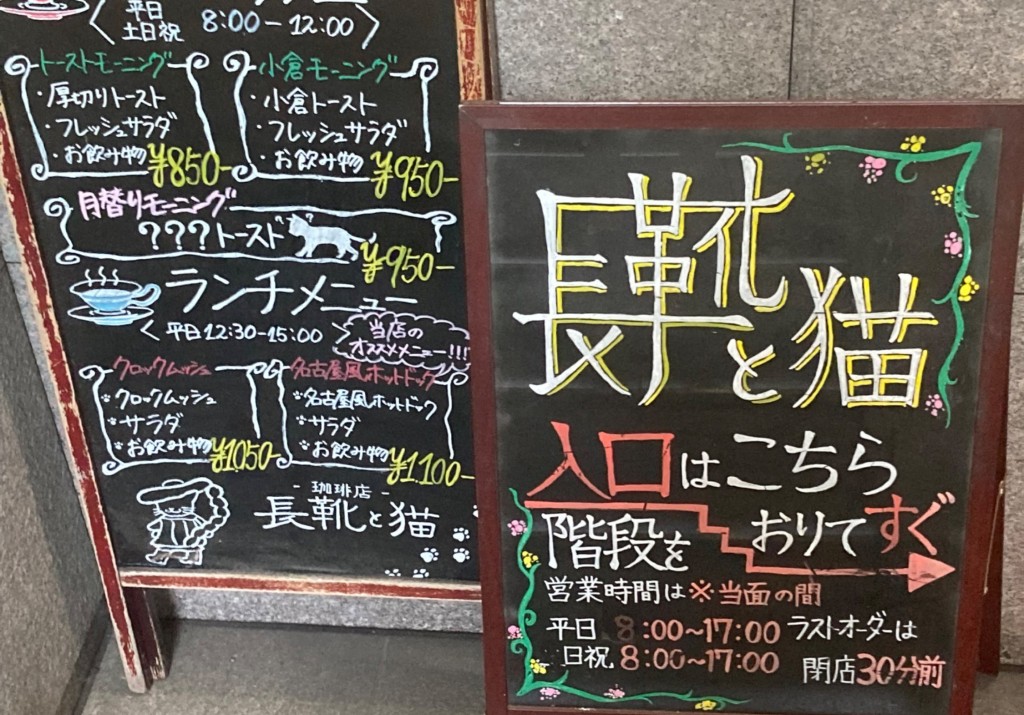 平日
土日祝 8:00-12:00
トーストモーニング
・厚切りトースト
・フレッシュサラダ
・お飲み物 ¥850-
小倉モーニング
・小倉トースト
・フレッシュサラダ
・お飲み物 ¥950-
月替りモーニング
???トースト ¥950-
ランチメニュー
〈 平日12:30-15:00 〉
当店の
オススメメニュー!!!
クロックムッシュ
クロックムッシュ
サラダ
お飲み物 ¥1050-
名古屋風ホットドック
名古屋風ホットドック
サラダ
お飲み物 ¥1.100-
- 珈琲店 -
長靴と猫
長靴と猫
入口はこちら
階段を おりてすぐ
営業時間は※当面の間
平日 8:00~17:00 ラストオーダーは
日祝 8:00~17:00 閉店30分前